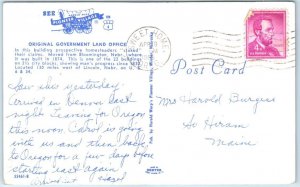 SEE
PIONEER VILLAGE
ORIGINAL GOVERNMENT LAND OFFICE
In this building prospective homesteaders "staked
their claims". Moved from Bloomington, Nebr., where
it was built in 1874. This is one of the 22 buildings
in this city block, showing man's progress since 1830.
Located 132 miles west of Lincoln, Nebr. on U. S.
6 & 34.
Post Card
Saw this yesterday.
Arrived in Denver last
night. Leaving for Oregon
this noon. Carol is going
with us and then back
to Oregon for a few days before
starting east again
Mrs Harold Burgess
So Hiram
Maine
Pub. by Harold Warp's Pioneer Village, Minden, Nebraska
DEXTER